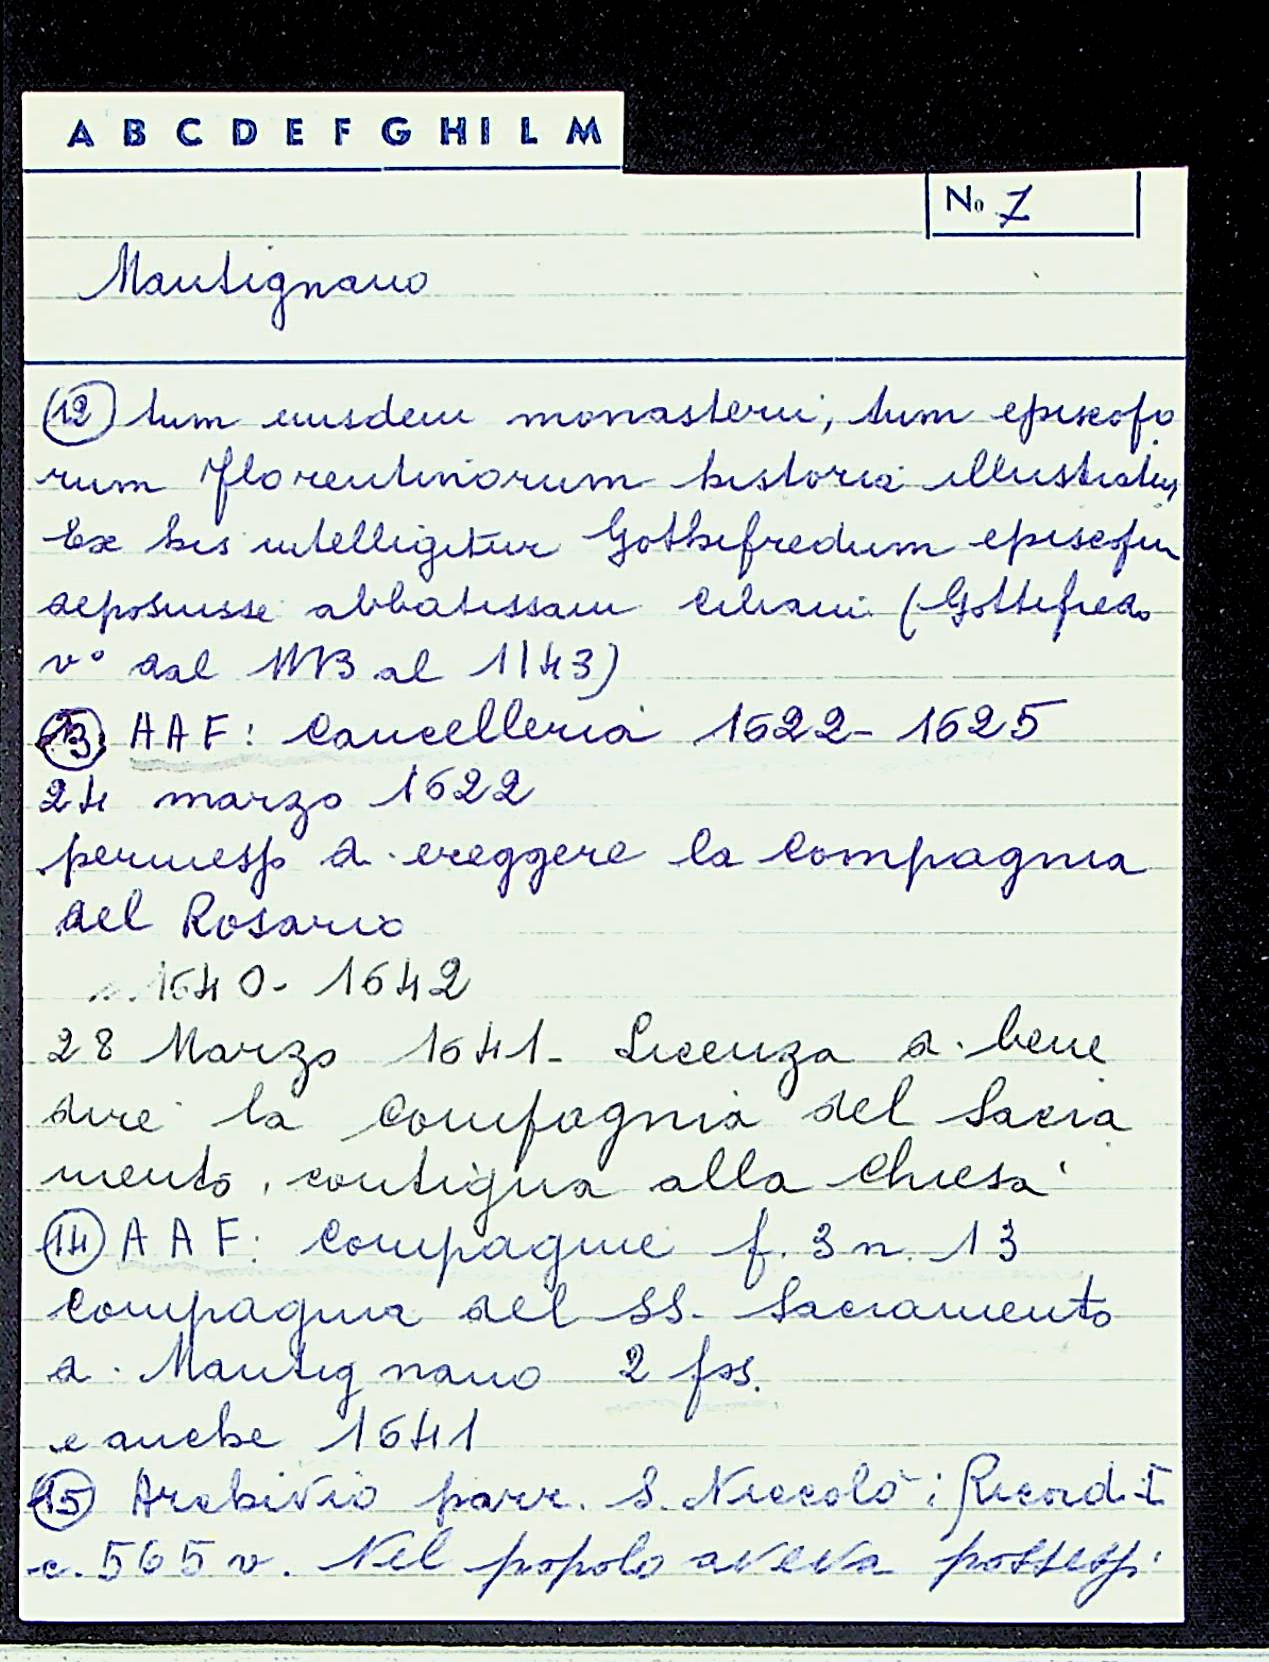 A B C D E F G H I L M
No 7
Mantignano
(12) tum eiusdem monasterii, tum episcopo
rum florentinorum historia illustratur
Ex his intelligitur Gothifredum episcopum
deposuisse abbatissam Ciliani (Gottifredo
v° dal 1113 al 1143)
(13) AAF: Cancelleria 1622-1625
24 marzo 1622
permesso di ereggere la Compagnia
del Rosario
1640-1642
28 Marzo 1641- Licenza di bene
dire la Compagnia del Sacra
mento, contigua alla Chiesa
(14) AAF: Compagnie f. 3 n. 13
Compagnia del SS. Sacramento
di Mantignano 2 fss.
e anche 1641
(15) Archivio parr. S. Niccolò: Ricord. I
c. 565 v. Nel popolo aveva possessi